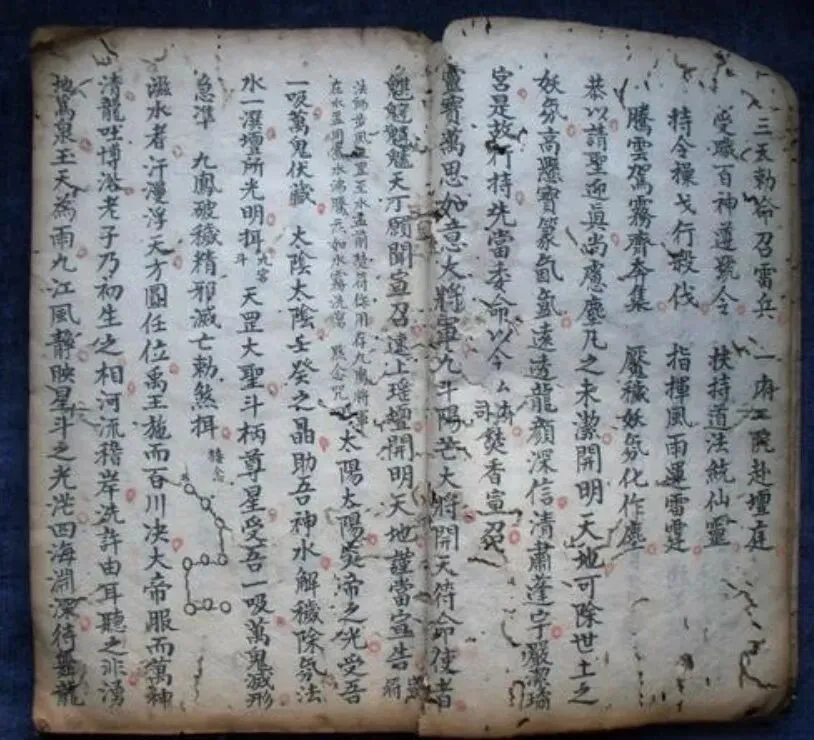 三天勅命召雷兵　一府二院赴壇庭
受職百神遵號令　扶持道法統仙靈
持令操戈行殺伐　指揮風雨運雷霆
騰雲駕霧齊奔集　壓穢妖氛化作塵
恭以請聖迎眞尚慮塵凡之未潔開明天地可除世土之
妖氛高懸寳篆氤氳遠透龍顔深信清肅蓬宇嚴潔壇
宮是故行持先當委命以今厶府司焚香宣召
靈寳萬思如意大將軍九斗陽芒大將開天符命使者
天丁願聞宣召速上瑤壇開明天地謹當宣告
法師步風至水盂前焚符存用九鳳將軍
在水盂用水沸騰云如水霧洗窩　黙念咒
太陽太陽炎帝之光受吾
一吸萬鬼伏藏　太陰太陰壬癸之晶助吾神水解穢除氛法
水一潠壇所光明揖九宮斗　天罡大聖斗柄尊星受吾一吸萬鬼滅形
急準　九鳳破穢精邪滅亡勅煞揖
滋水者汗漫浮天方圓任位禹王施而百川决大帝服而萬神
清龍吐博浴老子乃初生之相河流稽岸洗許由耳聽之非湧
地萬泉玉天為雨九江風静映星斗之光茫四海淵深待龍